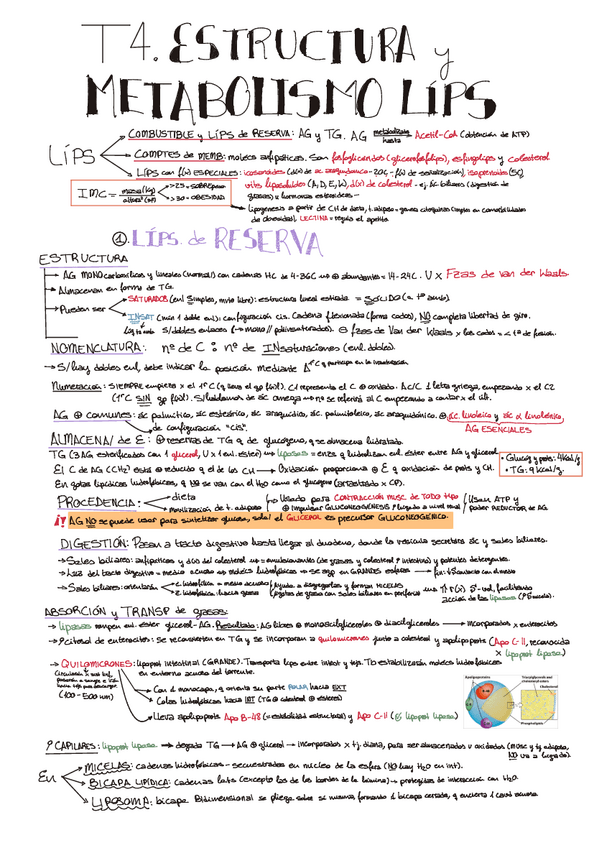 T4. ESTRUCTURA y
METABOLISMO LÍPS
LÍPS
COMBUSTIBLE y LÍPS de RESERVA: AG y TG. AG metabolizan hasta Acetil-CoA (obtención de ATP)
COMPTES de MEMB: molecs anfipáticas. Son fosfoglicéridos (glicerofosfolíps), esfingolíps y colesterol
LÍPS con f(x) ESPECIALES: icosanoides (d(x) de ác. araquidónico - 20C - f(x) de señalización), isoprenoides (5C)
vits liposolubles (A, D, E, K), d(x) de colesterol - ej. ác. biliares (digestión de
grasas) u hormonas esteroideas -
Lipogénesis a partir de CH de dieta, t. adiposo = genera
de obesidad), LECTINA = regula el apetito
IMC = masa (Kg) / altura² (m) > 25 = SOBREPESO
> 30 = OBESIDAD
①. LÍPS. de RESERVA
ESTRUCTURA
AG MONOcarboxílicos y lineales (normal) con cadenas HC de 4-36C ⊕ abundantes = 14-24C. U x Fzas de van der Waals.
Almacenan en forma de TG.
Pueden ser
SATURADOS (enl. simples, máx libre): estructura lineal estirada = SÓLIDO (= tª amb).
INSAT (mín 1 doble enl): configuración cis. Cadena flexionada (forma codos), NO completa libertad de giro.
s/dobles enlaces (→ mono // poliinsaturados). ⊖ fzas de Van der Waals x los codos = < tª de fusión.
NOMENCLATURA: nº de C : nº de INsaturaciones (enl. dobles).
→ S/ hay dobles enl, debe indicar la posición mediante Δ nº C q participa en la insaturación
Numeración: SIEMPRE empieza x el 1er C (q lleva el gp f(x)). C1 representa el C ⊕ oxidado. A c/C 1 letra griega, empezando x el C2
(1er C SIN gp f(x)). S/ hablamos de ác omega no se referirá al C empezando a contar x el últ.
AG ⊕ comunes: ác palmítico, ác esteárico, ác araquídico, ác. palmitoleico, ác araquidónico. ⊕ ác. linoleico y ác α linolénico,
de configuración "cis".
AG ESENCIALES
ALMACENA/ de E: ⊕ reservas de TG q de glucógeno, q se almacena hidratado.
TG (3 AG esterificados con 1 glicerol, U x 1 enl. éster) → lipasas = enzs q hidrolizan enl. éster entre AG y glicerol.
• Glucóg y prots: 4Kcal/g.
• TG: 9 Kcal/g.
El C de AG (CH₂) está ⊕ reducido q el de los CH → Oxidación proporciona ⊕ E q oxidación de prots y CH.
En gotas lipídicas hidrofóbicas, q NO se van con el H₂O como el glucógeno (arrastrado x OP).
PROCEDENCIA:
dieta
movilización de t. adiposo
Usado para CONTRACCIÓN MUSC de TODO tipo
⊕ Impulsar GLUCONEOGÉNESIS
Usan ATP y
poder REDUCTOR de AG
¡! AG NO se puede usar para sintetizar glucosa, solo/ el GLICEROL es precursor GLUCONEOGÉNICO.
DIGESTIÓN: Pasan x tracto digestivo hasta llegar al duodeno, donde la vesícula secretará ác y sales biliares.
→ Sales biliares: anfipáticas y d(x) del colesterol = emulsionantes (de grasas y colesterol) y potentes detergentes.
→ Luz del tracto digestivo = medio acuoso molecs hidrofóbicas → se agp en GRANDES esferas → fin: ↓S contacto con el medio
→ Sales biliares: orientarán
C. hidrofílica = medio acuoso
C hidrofóbica: hacia grasas
Ayuda a disgregarlas y forman MICELAS
(gotitas de grasa con sales biliares en periferia)
↑ r(x) S-vol, facilitando
acción de las lipasas
ABSORCIÓN y TRANSP de grasas:
→ Lipasas rompen enl. éster glicerol-AG. Resultado: AG libres ⊕ monoacilgliceroles ⊕ diacilgliceroles → incorporados x enterocitos
→ citosol de enterocitos: se reconvierten en TG y se incorporan a quilomicrones junto a colesterol y apolipoprots (Apo C-II, reconocida
x lipoprot lipasa)
→ QUILOMICRONES: lipoprot intestinal (GRANDE). Transporta líps entre intest y tejs. Tb estabilizan molecs hidrofóbicas
en entorno acuoso del torrente.
(100 - 500 nm)
Con 1 monocapa, q orienta su parte POLAR hacia EXT
Colas hidrofóbicas hacia INT (TG ⊕ colesterol ⊕ ésteres)
Lleva apolipoprots Apo B-48 (= estabilidad estructural) y Apo C-II (lipoprot lipasa)
Apolipoproteins
Triacylglycerols and cholesteryl esters
Cholesterol
Phospholipids
CAPILARES: lipoprot lipasa → degrada TG → AG ⊕ glicerol → incorporados x tj. diana, para ser almacenados u oxidados (musc y tj adiposo,
NO va a hígado).
En
MICELAS: cadenas hidrofóbicas - secuestradas en núcleo de la esfera (NO hay H₂O en int).
BICAPA LIPÍDICA: cadenas lats (excepto las de los bordes de la lámina) → protegidas de interacción con H₂O.
LIPOSOMA: bicapa Bidimensional se pliega sobre sí misma, formando 1 bicapa cerrada, q encierra 1 cavd acuosa